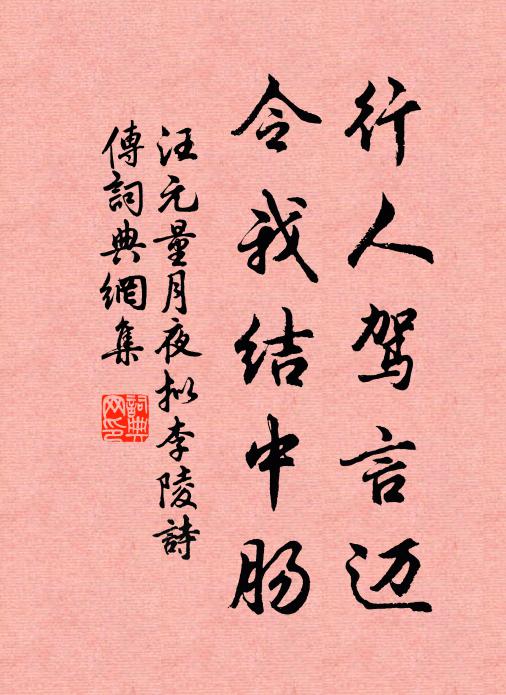 行人驾言迈
令我结中肠
汪元量月夜拟李陵詩
傳詞典網集
詞典网印